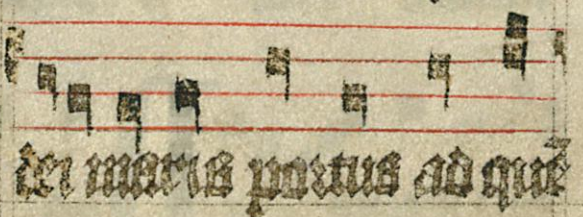 dei maris portus ad quē